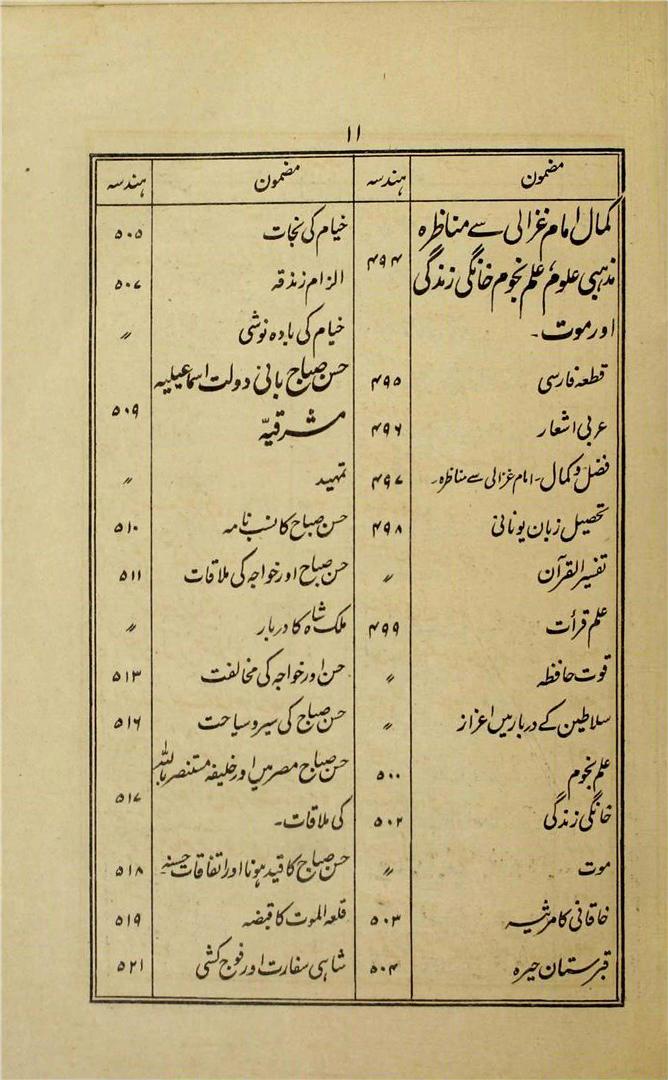 ۱۱
مضمون ہندسہ
کمال امام غزالی سے مناظرہ
مذہبی علوم، علم نجوم خانگی زندگی ۴۹۴
اور موت۔
قطعہ فارسی ۴۹۵
عربی اشعار ۴۹۶
فضل و کمال۔ امام غزالی سے مناظرہ۔ ۴۹۷
تحصیل زبان یونانی ۴۹۸
تفسیر القرآن 〃
علم قرأت ۴۹۹
قوت حافظہ 〃
سلاطین کے دربار میں اعزاز 〃
علم نجوم ۵۰۰
خانگی زندگی ۵۰۲
موت 〃
خاقانی کا مرثیہ ۵۰۳
قبرستان حیرہ ۵۰۴
مضمون ہندسہ
خیام کی نجات ۵۰۵
الزام زندقہ ۵۰۷
خیام کی بادہ نوشی 〃
حسن صباح بانی دولت اسماعیلیہ
مشرقیہ ۵۰۹
تمہید 〃
حسن صباح کا نسب نامہ ۵۱۰
حسن صباح اور خواجہ کی ملاقات ۵۱۱
ملک شاہ کا دربار 〃
حسن اور خواجہ کی مخالفت ۵۱۳
حسن صباح کی سیر و سیاحت ۵۱۶
حسن صباح مصر میں اور خلیفہ مستنصر باللہ
کی ملاقات۔ ۵۱۷
حسن صباح کا قید ہونا اور اتفاقات حسنہ ۵۱۸
قلعہ الموت کا قبضہ ۵۱۹
شاہی سفارت اور فوج کشی ۵۲۱